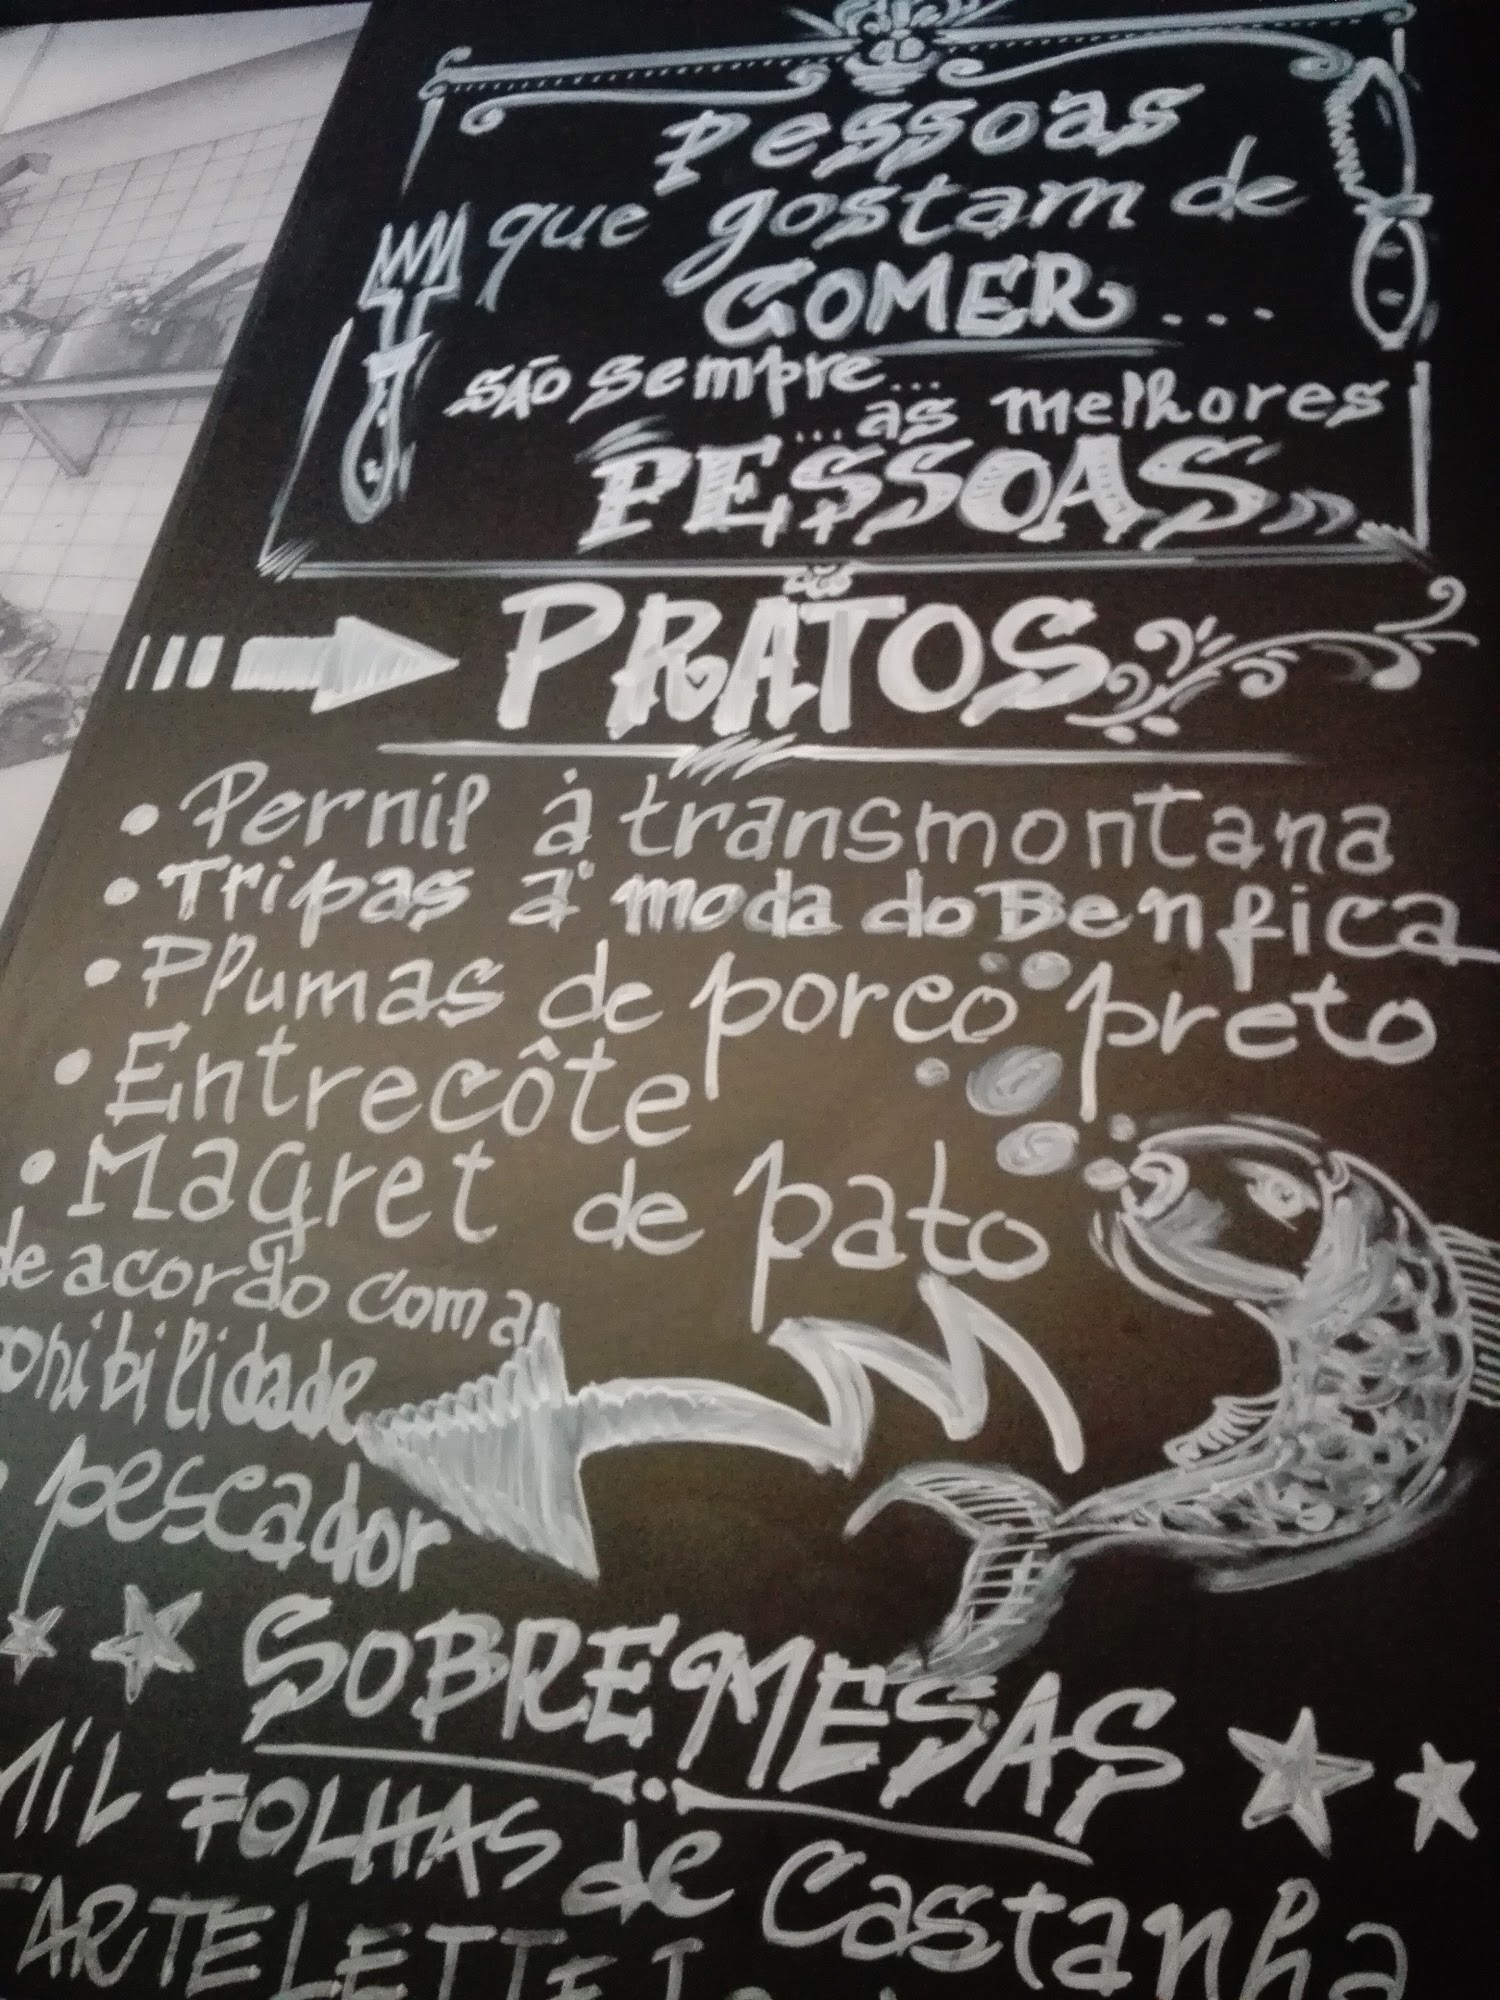 Pessoas
que gostam de
COMER...
são sempre...
...as melhores
PESSOAS
PRATOS
• Pernil à transmontana
• Tripas à moda do Benfica
• Plumas de porco preto
• Entrecôte
• Magret de pato
de acordo com a
onibilidade
pescador
SOBREMESAS
MIL FOLHAS de Castanha
TARTELETTE